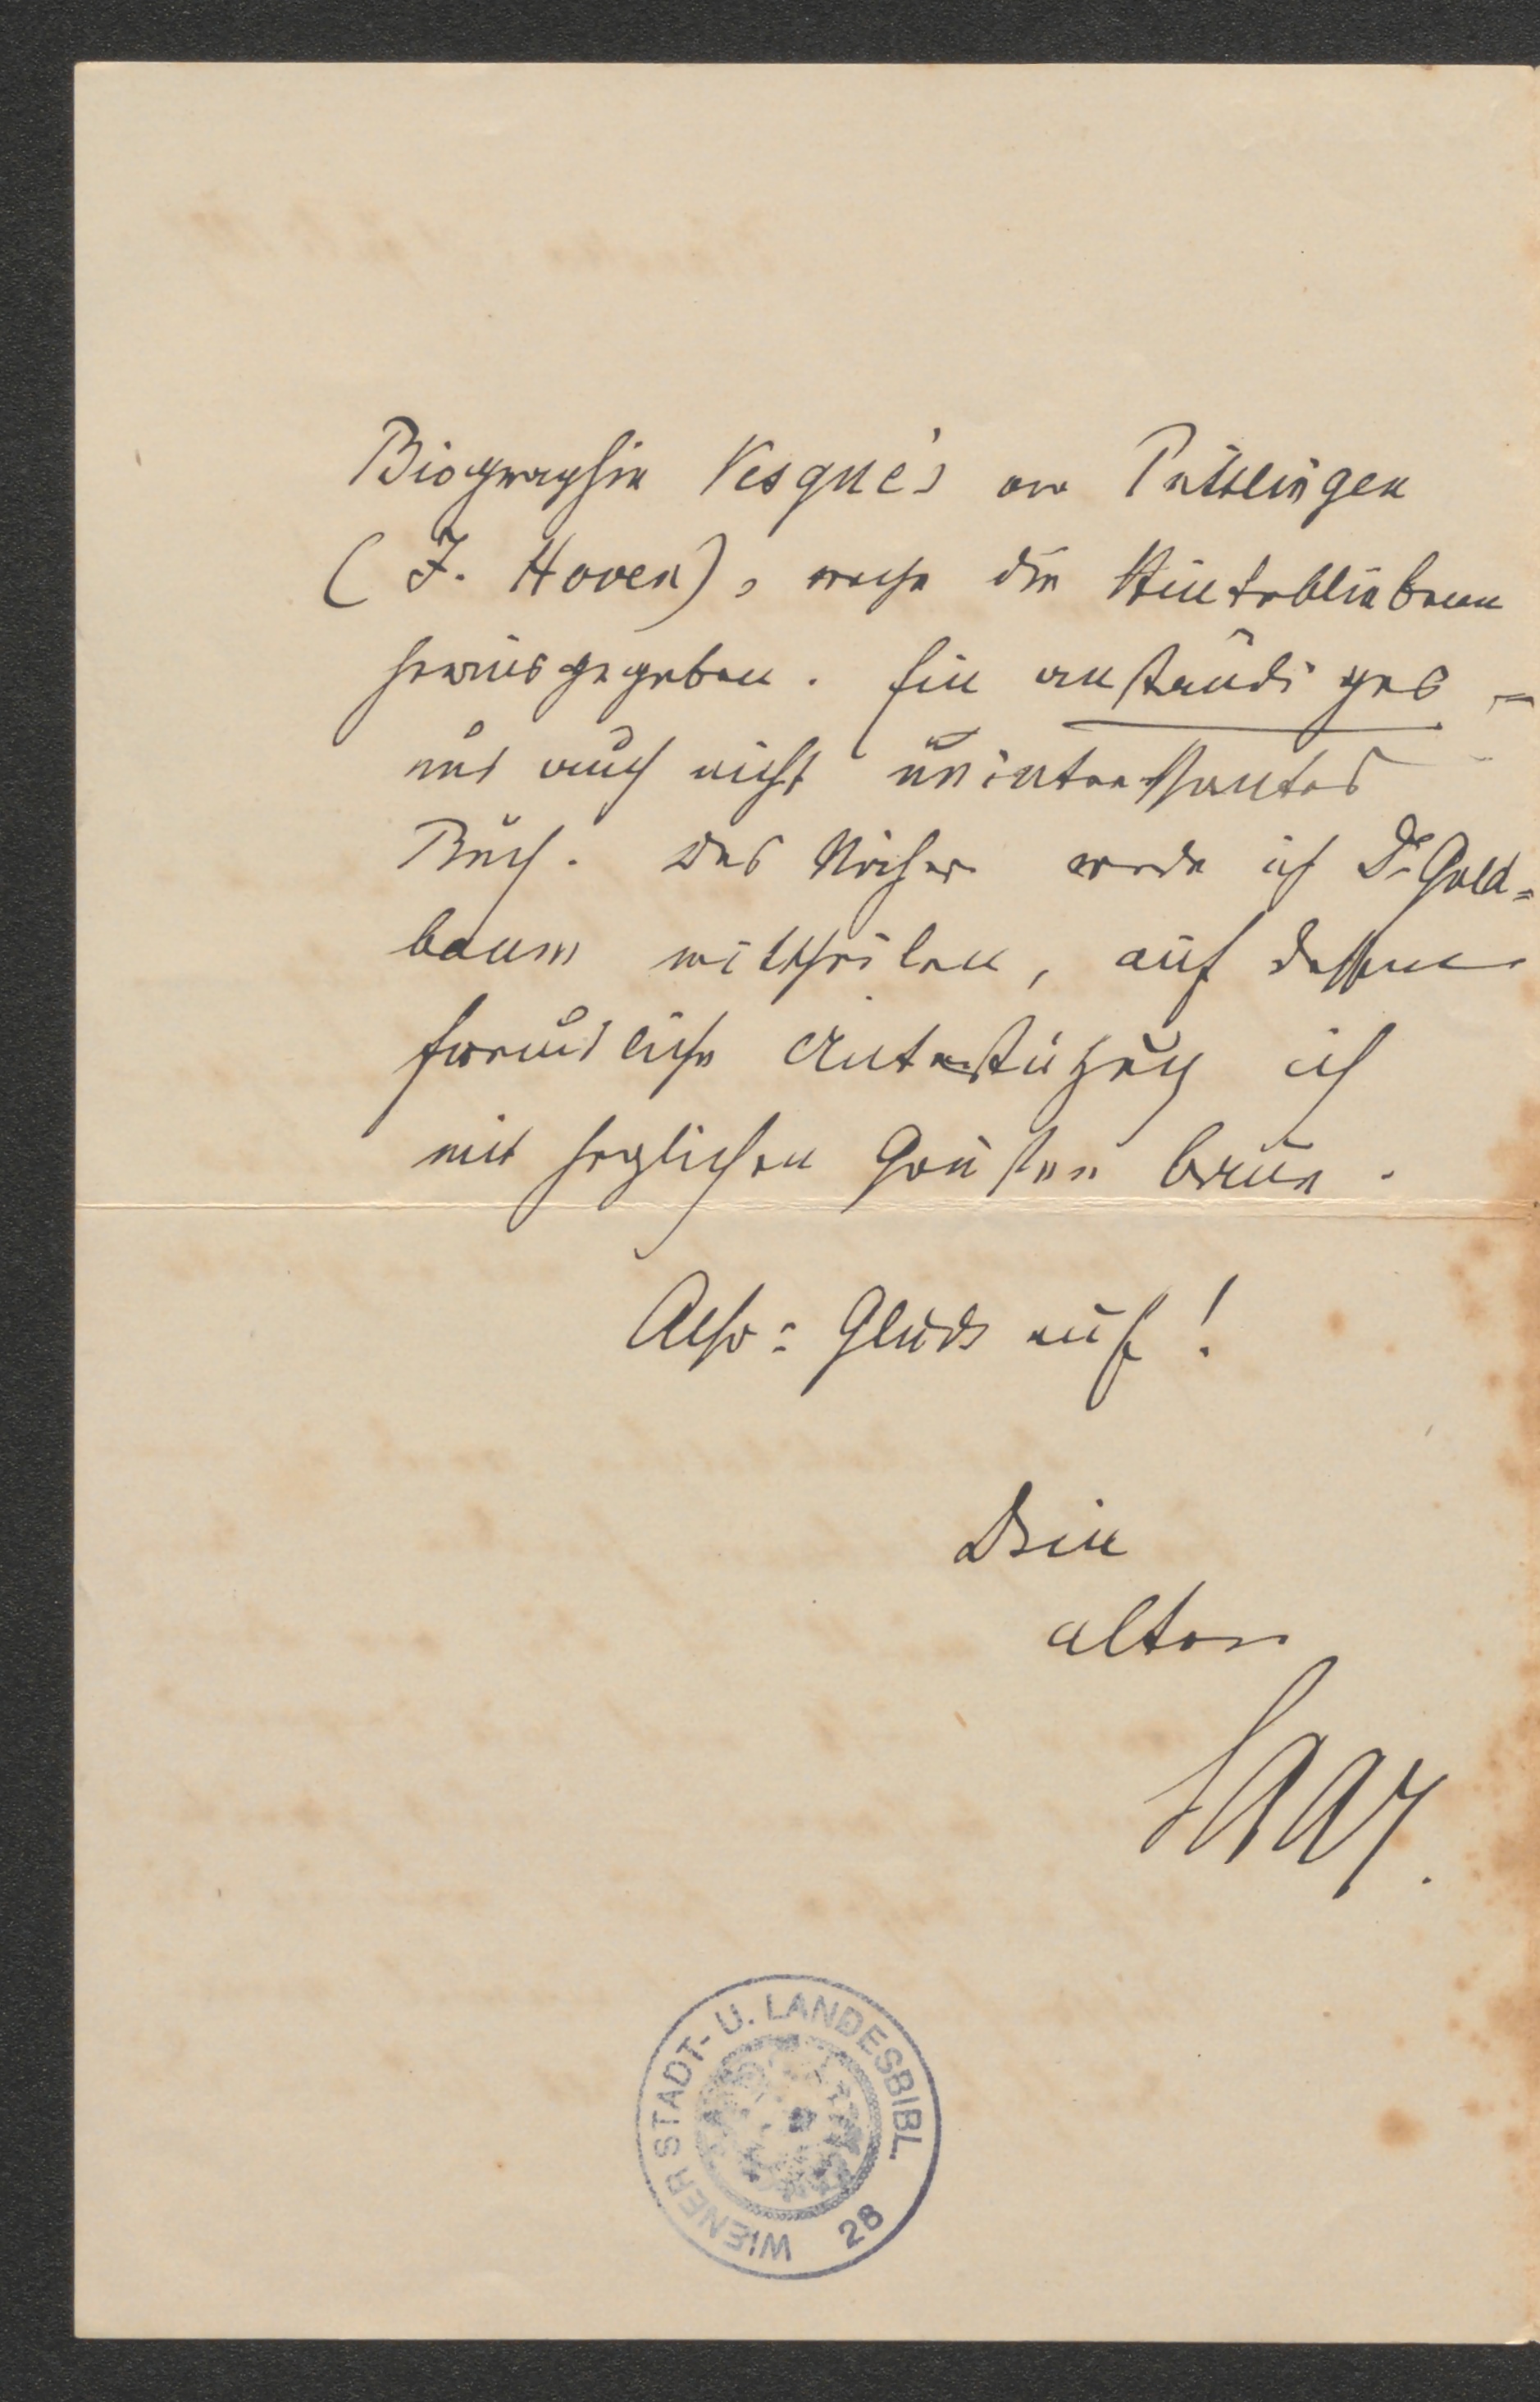 Biographie Vesque's von Püttlingen
(J. Hoven), welche die Hinterbliebenen
herausgegeben. Ein anständiges -
und auch nicht uninteressantes
Buch. Das Nähere werde ich Dr Gold=
baum mittheilen, auf dessen
freundliche Unterstützung ich
mit herzlichen Grüßen baue.
Also: Glück auf!
Dein
alter
Saar.
WIENER STADT- U. LANDESBIBL.
28